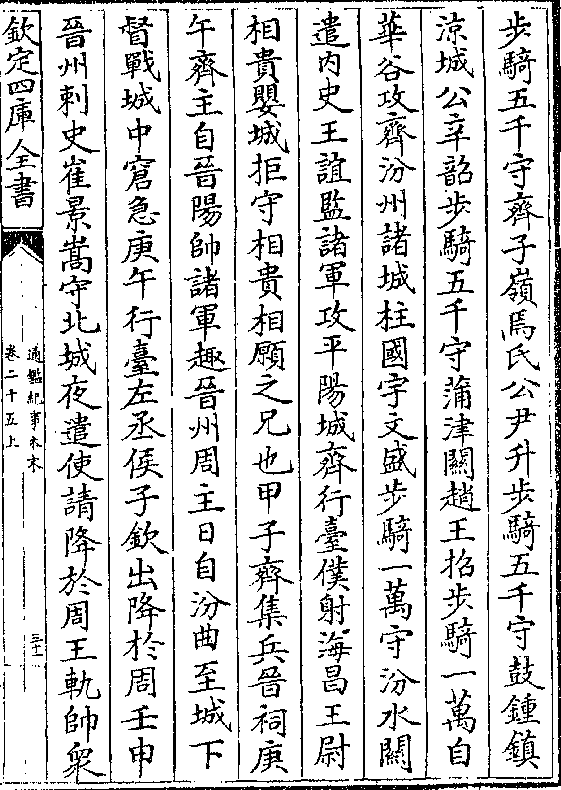 步騎五千守齊子嶺焉氏公尹升步騎五千守鼓鍾鎮
涼城公辛韶步騎五千守蒲津關趙王招步騎一萬自
華谷攻齊汾州諸城柱國宇文盛步騎一萬守汾水關
遣内史王誼監諸軍攻平陽城齊行臺僕射海昌王尉
相貴嬰城拒守相貴相願之兄也甲子齊集兵晉祠庚
午齊主自晉陽帥諸軍趣晉州周主日自汾曲至城下
督戰城中窘急庚午行臺左丞侯子欽出降於周壬申
晉州刺史崔景嵩守北城夜遣使請降於周王軌帥衆
欽定四庫全書
通鑑紀事本末
卷二十五上
三十一